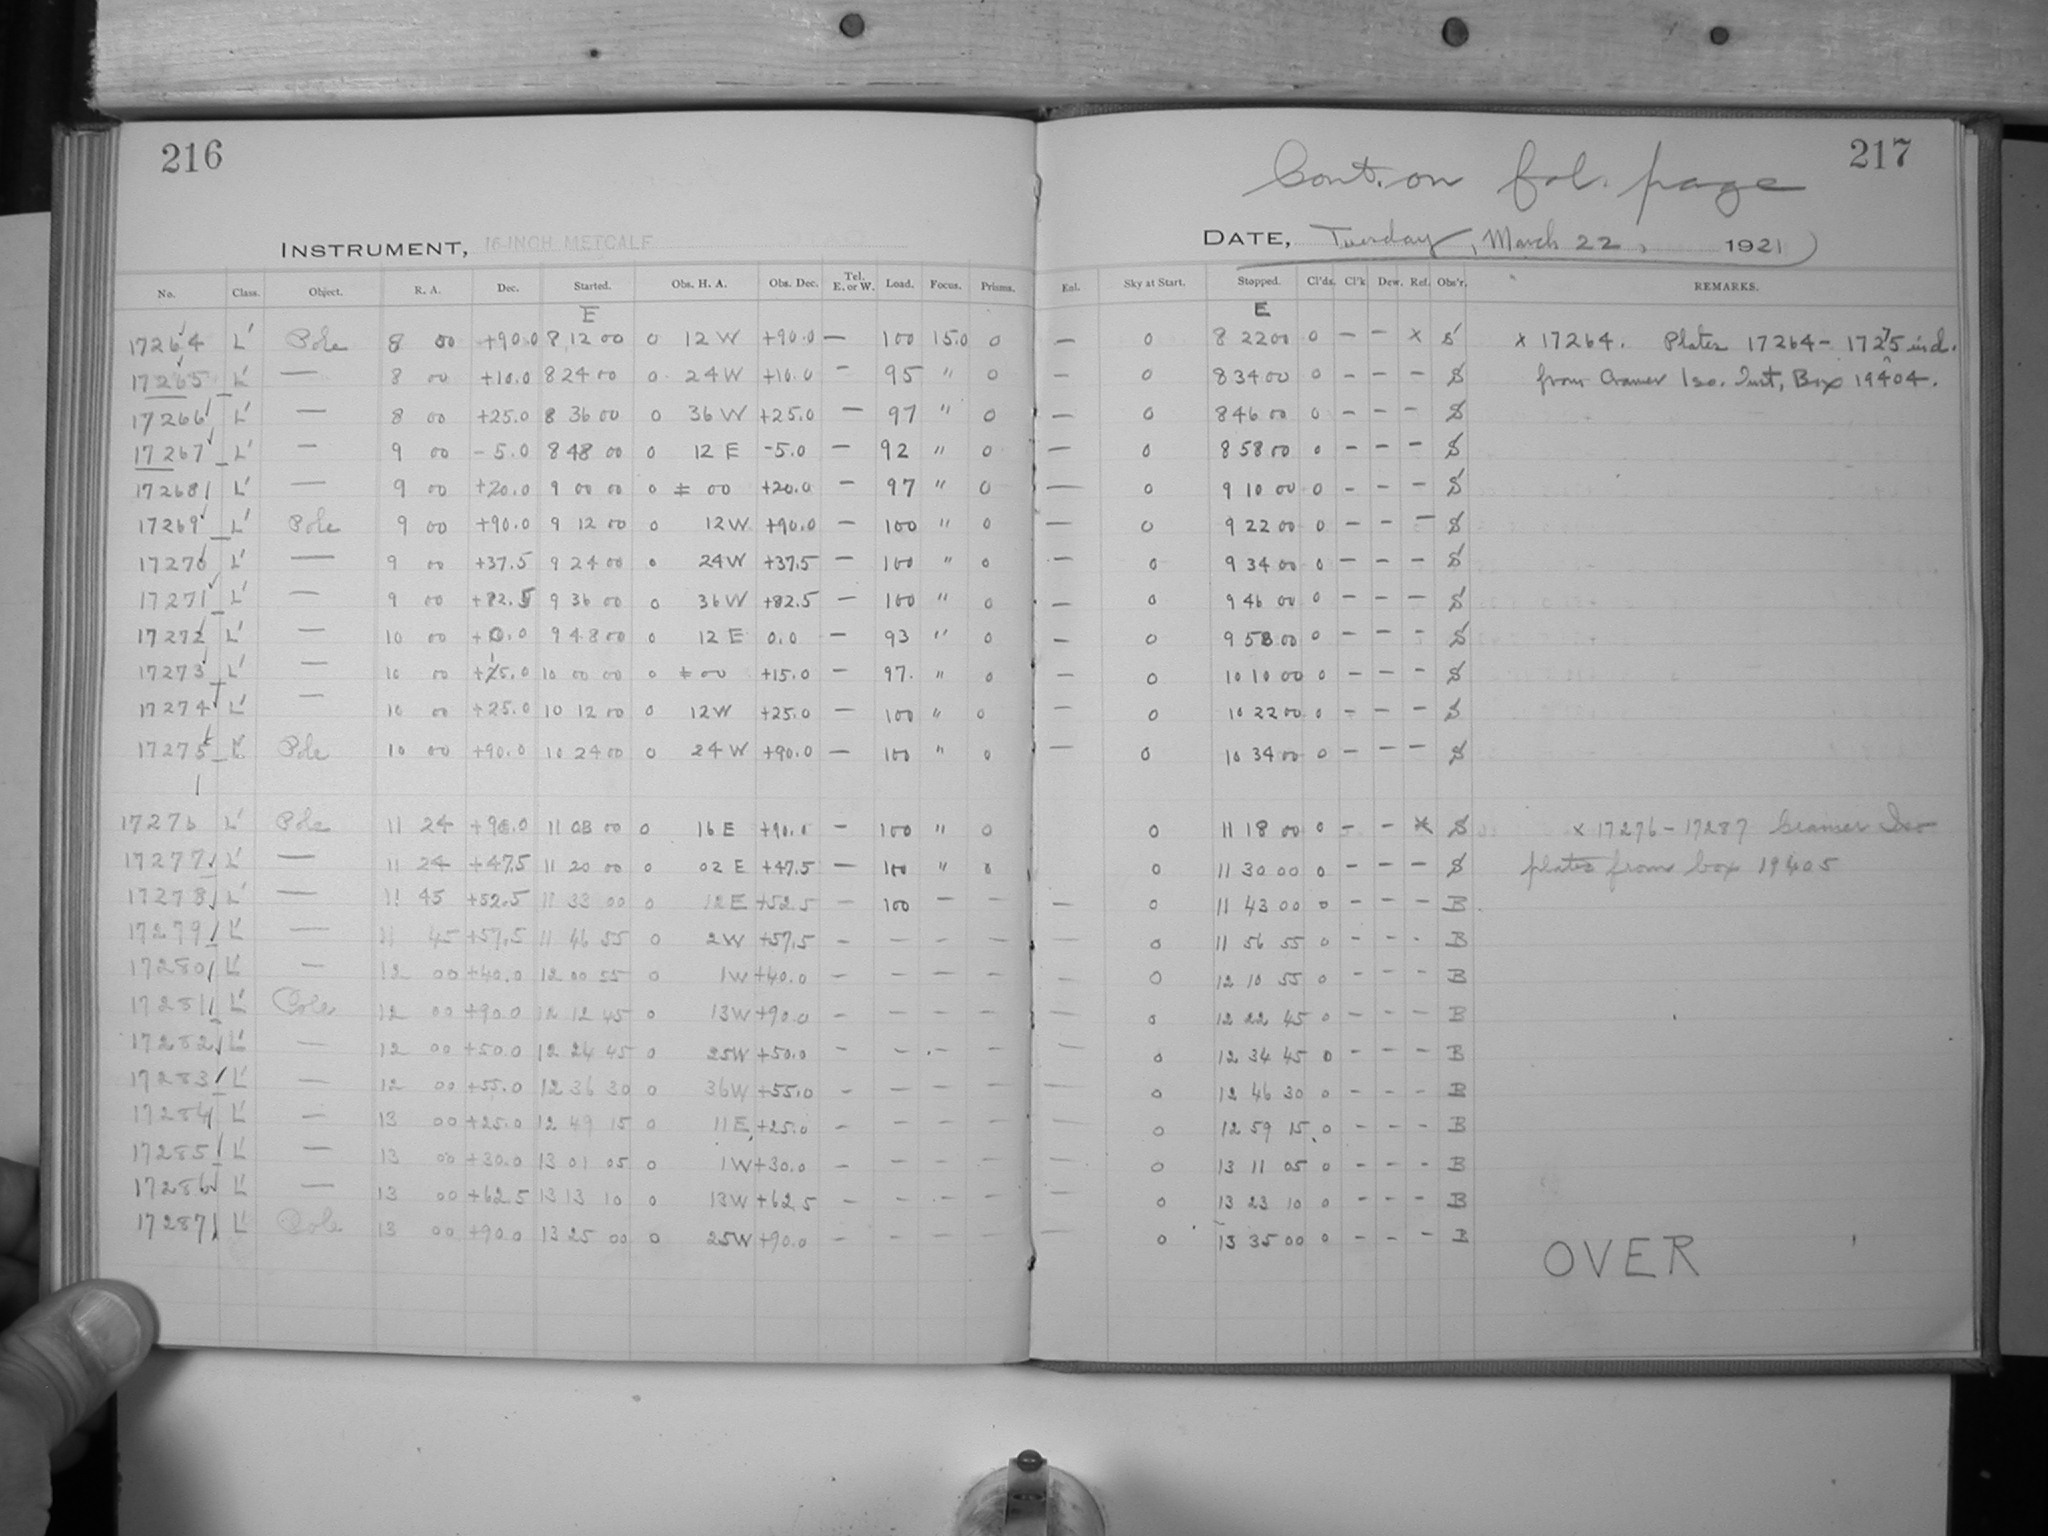 216
217
Cont. on fol. page
INSTRUMENT, 16-INCH METCALF
DATE, Tuesday, March 22, 1921)
No. Class. Object. R. A. Dec. Started. Obs. H. A. Obs. Dec. Tel. E. or W. Load. Focus. Prisms. Enl. Sky at Start. Stopped. Cl'ds. Cl'k Dew. Ref. Obs'r. REMARKS.
E E
17264 L' Pole 8 00 +90.0 8 12 00 0 12 W +90.0 — 100 15.0 0 — 0 8 22 00 0 — — x S x 17264. Plates 17264 - 17275 incl.
17265 L' — 8 00 +10.0 8 24 00 0 24 W +10.0 — 95 " 0 — 0 8 34 00 0 - - - S from Cramer Iso. Inst, Box 19404.
17266 L' — 8 00 +25.0 8 36 00 0 36 W +25.0 — 97 " 0 — 0 8 46 00 0 - - - S
17267 L' — 9 00 - 5.0 8 48 00 0 12 E -5.0 — 92 " 0 — 0 8 58 00 0 - - - S
17268 L' — 9 00 +20.0 9 00 00 0 ± 00 +20.0 — 97 " 0 — 0 9 10 00 0 - - - S
17269 L' Pole 9 00 +90.0 9 12 00 0 12 W +90.0 — 100 " 0 — 0 9 22 00 0 - - - S
17270 L' — 9 00 +37.5 9 24 00 0 24 W +37.5 — 100 " 0 0 9 34 00 0 - - - S
17271 L' — 9 00 +82.5 9 36 00 0 36 W +82.5 — 100 " 0 — 0 9 46 00 0 - - - S
17272 L' — 10 00 +0.0 9 48 00 0 12 E 0.0 — 93 " 0 — 0 9 58 00 0 - - - S
17273 L' — 10 00 +15.0 10 00 00 0 ± 00 +15.0 — 97. " 0 — 0 10 10 00 0 - - - S
17274 L' — 10 00 +25.0 10 12 00 0 12 W +25.0 — 100 " 0 — 0 10 22 00 0 - - - S
17275 L' Pole 10 00 +90.0 10 24 00 0 24 W +90.0 — 100 " 0 — 0 10 34 00 0 - - - S
17276 L' Pole 11 24 +90.0 11 08 00 0 16 E +90.0 — 100 " 0 0 11 18 00 0 - - x S x 17276 - 17287 Cramer Iso
17277 L' — 11 24 +47.5 11 20 00 0 02 E +47.5 — 100 " 0 0 11 30 00 0 - - - S plates from box 19405
17278 L' — 11 45 +52.5 11 33 00 0 12 E +52.5 — 100 — — — 0 11 43 00 0 - - - B
17279 L' — 11 45 +57.5 11 46 55 0 2 W +57.5 - - - - — 0 11 56 55 0 - - - B
17280 L' — 12 00 +40.0 12 00 55 0 1 W +40.0 - - - - — 0 12 10 55 0 - - - B
17281 L' Pole 12 00 +90.0 12 12 45 0 13 W +90.0 - - - - — 0 12 22 45 0 - - - B
17282 L' — 12 00 +50.0 12 24 45 0 25 W +50.0 - - - - — 0 12 34 45 0 - - - B
17283 L' — 12 00 +55.0 12 36 30 0 36 W +55.0 - - - - — 0 12 46 30 0 - - - B
17284 L' — 13 00 +25.0 12 49 15 0 11 E +25.0 - - - - — 0 12 59 15 0 - - - B
17285 L' — 13 00 +30.0 13 01 05 0 1 W +30.0 - - - - — 0 13 11 05 0 - - - B
17286 L' — 13 00 +62.5 13 13 10 0 13 W +62.5 - - - - — 0 13 23 10 0 - - - B
17287 L' Pole 13 00 +90.0 13 25 00 0 25 W +90.0 - - - - — 0 13 35 00 0 - - - B
OVER